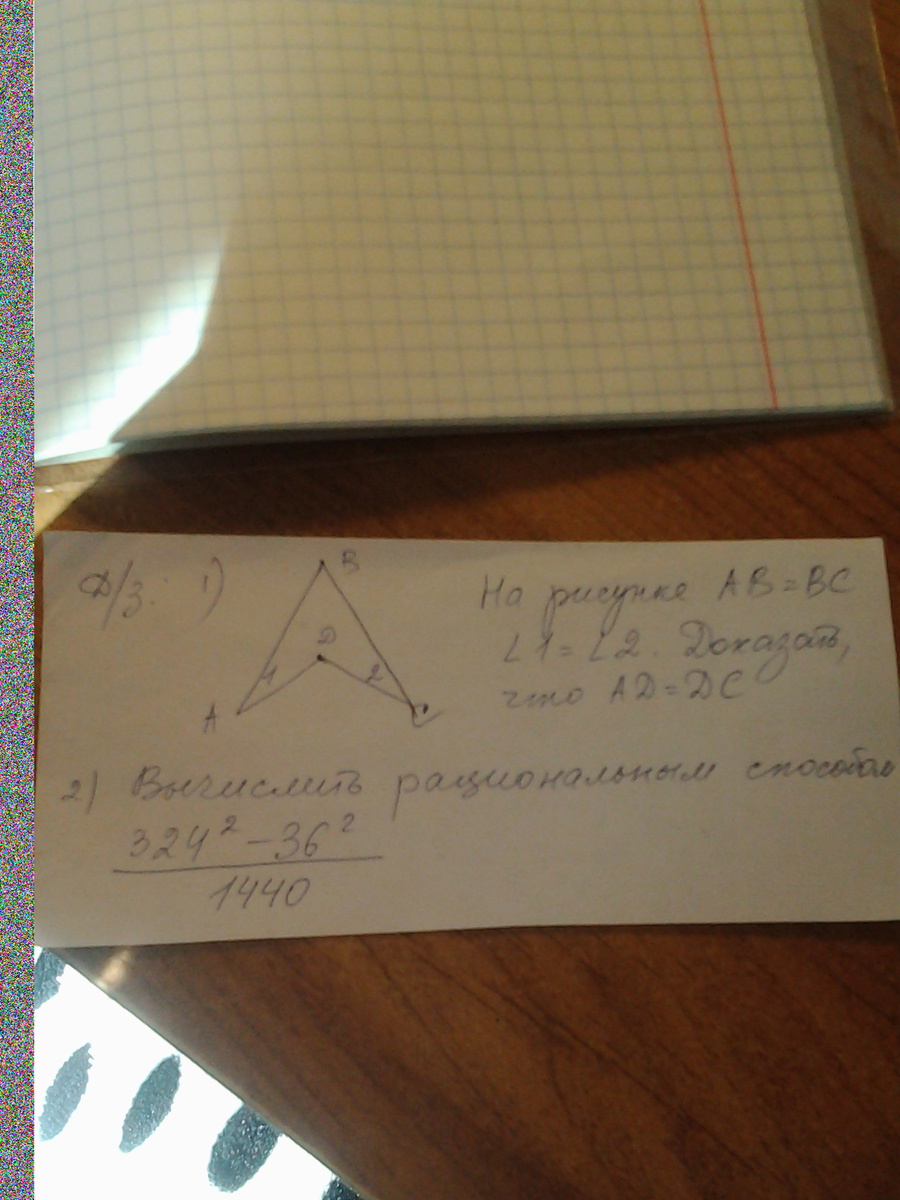 Д/з: 1)
B
D
1
2
A
C
На рисунке AB=BC
∠1=∠2. Доказать,
что AD=DC
2) Вычислить рациональным способом
324² - 36²
1440